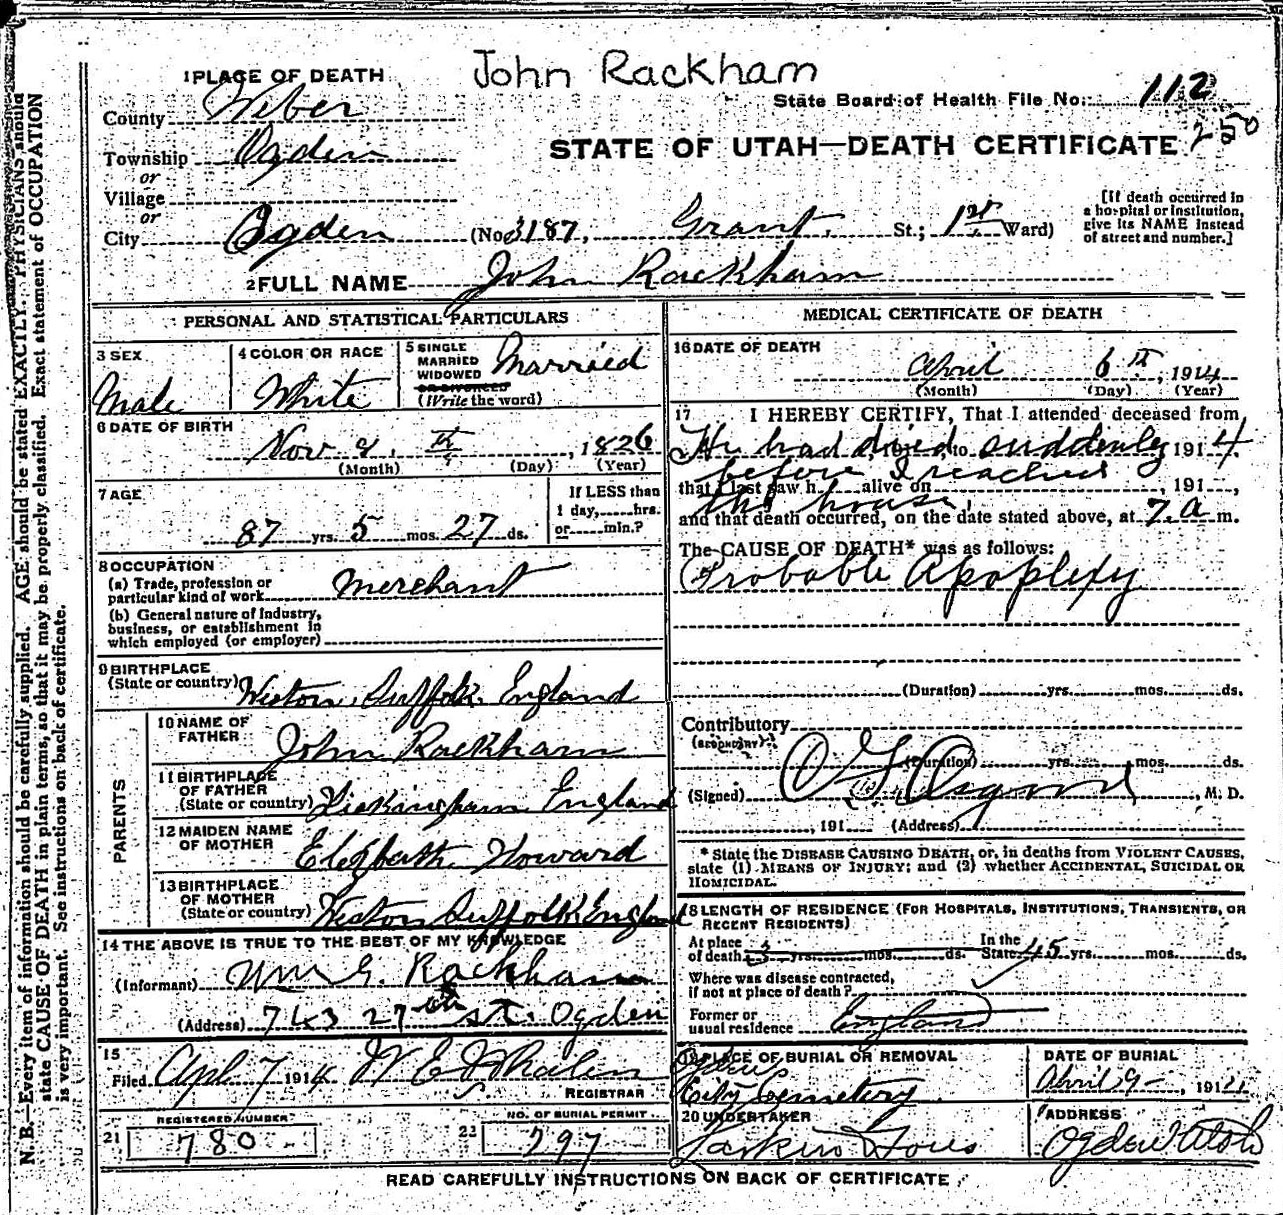 John Rackham
1 PLACE OF DEATH
State Board of Health File No. 112
County Weber
250
STATE OF UTAH—DEATH CERTIFICATE
Township Ogden
or
Village
or
City Ogden (No. 3187, Grant St.; 1st Ward)
[If death occurred in
a hospital or institution,
give its NAME instead
of street and number.]
2 FULL NAME John Rackham
PERSONAL AND STATISTICAL PARTICULARS
3 SEX
Male
4 COLOR OR RACE
White
5 SINGLE
MARRIED
WIDOWED
OR DIVORCED
(Write the word)
Married
6 DATE OF BIRTH
Nov 9th, 1826
(Month) (Day) (Year)
7 AGE
87 yrs. 5 mos. 27 ds.
If LESS than
1 day,......hrs.
or......min.?
8 OCCUPATION
(a) Trade, profession or
particular kind of work Merchant
(b) General nature of industry,
business, or establishment in
which employed (or employer)
9 BIRTHPLACE
(State or country) Weston, Suffolk, England
PARENTS
10 NAME OF
FATHER John Rackham
11 BIRTHPLACE
OF FATHER
(State or country) England
12 MAIDEN NAME
OF MOTHER Elizbath Howard
13 BIRTHPLACE
OF MOTHER
(State or country) Weston Suffolk England
14 THE ABOVE IS TRUE TO THE BEST OF MY KNOWLEDGE
(Informant) Wm G. Rackham
(Address) 743 27th St. Ogden
15
Filed Apl 7 1914 W E Whalen
REGISTRAR
REGISTERED NUMBER
21 780
NO. OF BURIAL PERMIT
22 297
MEDICAL CERTIFICATE OF DEATH
16 DATE OF DEATH
April 6th, 1914
(Month) (Day) (Year)
17 I HEREBY CERTIFY, That I attended deceased from
He had died suddenly 1914
before I reached
that I last saw h alive on , 191 ,
the house,
and that death occurred, on the date stated above, at 7 a m.
The CAUSE OF DEATH* was as follows:
Probable Apoplexy
(Duration) yrs. mos. ds.
Contributory
(SECONDARY)
(Duration) yrs. mos. ds.
(Signed) O S Osgood, M. D.
, 191 (Address)
* State the DISEASE CAUSING DEATH, or, in deaths from VIOLENT CAUSES,
state (1) MEANS OF INJURY; and (2) whether ACCIDENTAL, SUICIDAL OR
HOMICIDAL.
18 LENGTH OF RESIDENCE (FOR HOSPITALS, INSTITUTIONS, TRANSIENTS, OR
RECENT RESIDENTS)
At place
of death 3 yrs. mos. ds.
In the
State 45 yrs. mos. ds.
Where was disease contracted,
if not at place of death?
Former or
usual residence England
19 PLACE OF BURIAL OR REMOVAL
Ogden
City Cemetery
DATE OF BURIAL
April 9, 1914
20 UNDERTAKER
Larkin & Sons
ADDRESS
Ogden Utah
READ CAREFULLY INSTRUCTIONS ON BACK OF CERTIFICATE
N. B.—Every item of information should be carefully supplied. AGE should be stated EXACTLY. PHYSICIANS should
state CAUSE OF DEATH in plain terms, so that it may be properly classified. Exact statement of OCCUPATION
is very important. See instructions on back of certificate.